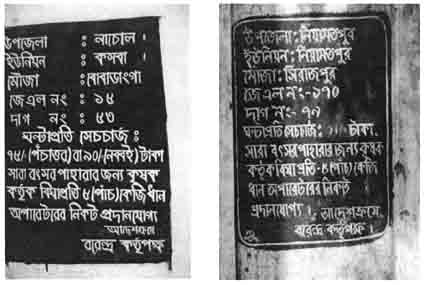 উপজেলা : নাচোল ।
ইউনিয়ন : কসবা ।
মৌজা :
জে এল নং : ১৫
দাগ নং : ৫৩
ঘন্টাপ্রতি সেচচার্জ :
৭৫/-(পঁচাত্তর) বা ৯০/-(নব্বই) টাকা
সারা বৎসর পাহারার জন্য কৃষক
কর্তৃক বিঘাপ্রতি ৫ (পাঁচ) কেজি ধান
অপারেটরের নিকট প্রদানযোগ্য
আদেশক্রমে
বরেন্দ্র কর্তৃপক্ষ
উপজেলা : নিয়ামতপুর
ইউনিয়ন : নিয়ামতপুর
মৌজা : সিরাজপুর
জে এল নং - ১৭০
দাগ নং - ৭৯
ঘন্টাপ্রতি সেচচার্জ : টাকা
সারা বৎসর পাহারার জন্য কৃষক
কর্তৃক বিঘা প্রতি - ৫ (পাঁচ) কেজি
ধান অপারেটরের নিকট
প্রদানযোগ্য । আদেশক্রমে
বরেন্দ্র কর্তৃপক্ষ ।